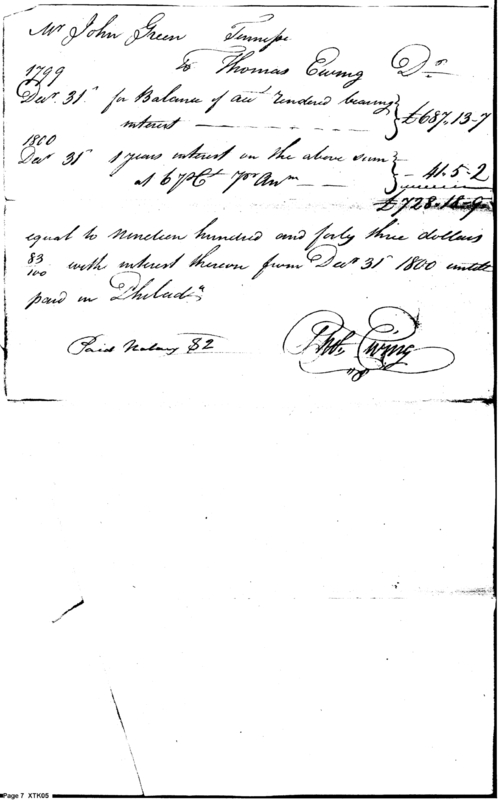 Mr John Green Tennessee
To Thomas Ewing Dr
1799
Decr 31st for Balance of acct rendered bearing
interest — — — — £687.13.7
1800
Decr 31st 1 years interest on the above sum
at 6 P Ct Pr Anm — — 41.5.2
£728.18.9
equal to Nineteen hundred and forty three dollars
83/100 with interest thereon from Decr 31st 1800 untill
paid in Philada
Paid Notary $2
Thos. Ewing
Page 7 XTK05